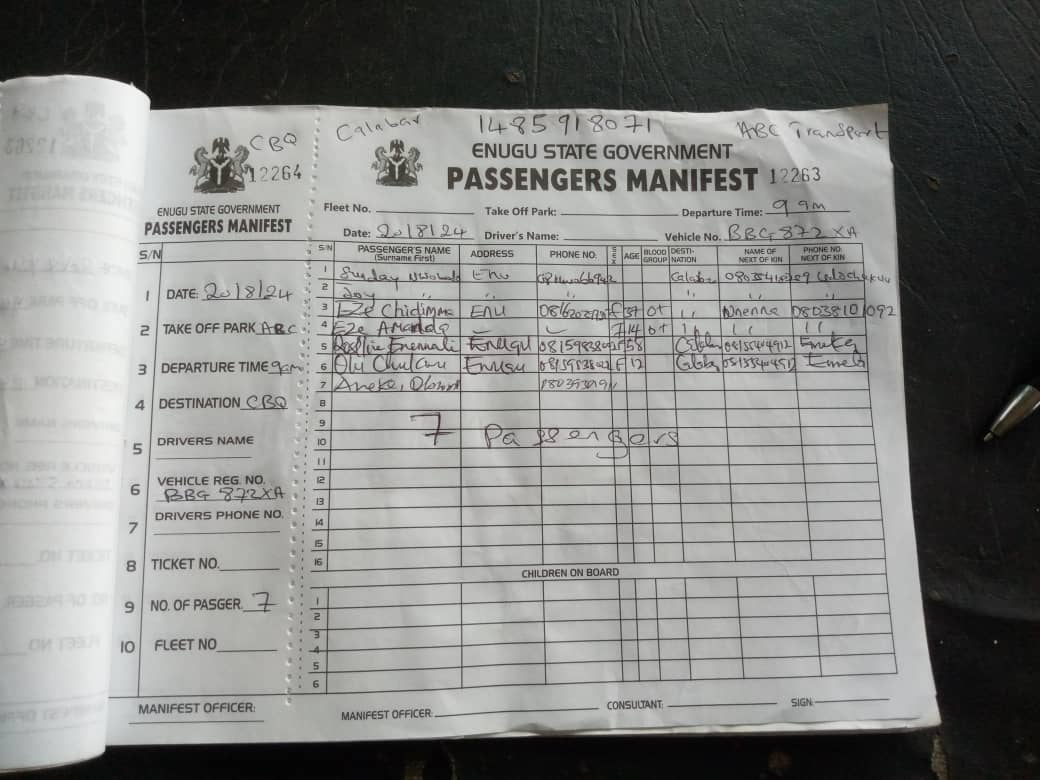 CBQ
12264
ENUGU STATE GOVERNMENT
PASSENGERS MANIFEST
S/N
1 DATE: 20/8/24
2 TAKE OFF PARK ABC
3 DEPARTURE TIME 9am
4 DESTINATION CBQ
5 DRIVERS NAME
6 VEHICLE REG. NO. BBG 872XA
7 DRIVERS PHONE NO.
8 TICKET NO.
9 NO. OF PASGER. 7
10 FLEET NO
MANIFEST OFFICER:
Calabar 1485918071 ABC Transport
ENUGU STATE GOVERNMENT
PASSENGERS MANIFEST 12263
Fleet No. Take Off Park: Departure Time: 9 am
Date: 20/8/24 Driver's Name: Vehicle No. BBG 872 XA
S/N PASSENGER'S NAME (Surname First) ADDRESS PHONE NO. SEX AGE BLOOD GROUP DESTI-NATION NAME OF NEXT OF KIN PHONE NO. NEXT OF KIN
1 Sunday Enu
2 Joy " " " " "
3 Eze Chidimma Enu F 37 O+ " Nnenna 08038101092
4 Eze Amanda 14 O+ " " "
5 Enugu F 58
6 Enugu F 12 Emeka
7 Aneke,
8
9
10 7 Passengers
11
12
13
14
15
16
CHILDREN ON BOARD
1
2
3
4
5
6
MANIFEST OFFICER: CONSULTANT: SIGN: